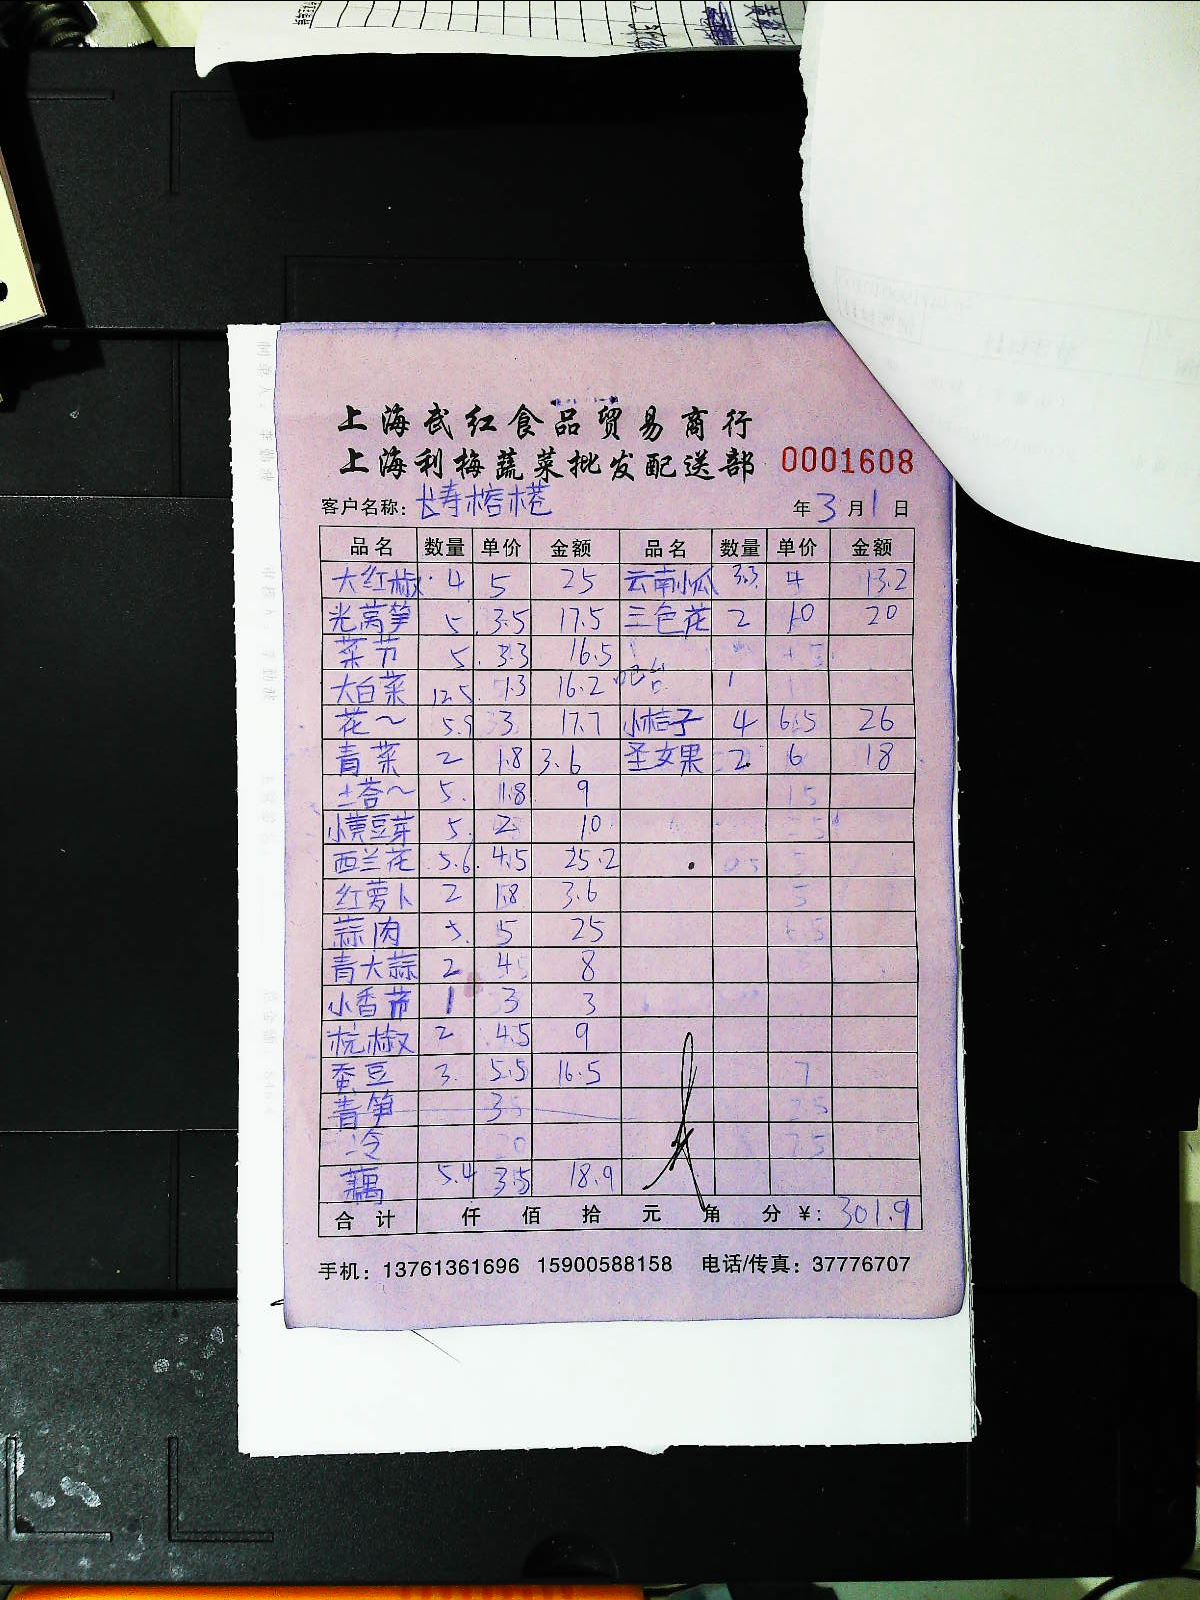 上海武红食品贸易商行
上海利梅蔬菜批发配送部 0001608
客户名称: 长寿榕巷 年 3 月 1 日
品名 数量 单价 金额 品名 数量 单价 金额
大红椒 4 5 25 云南小瓜 3.3 4 13.2
光莴笋 5 3.5 17.5 三色花 2 10 20
菜节 5 3.3 16.5
大白菜 12.5 1.3 16.2 吧台
花~ 5.9 3 17.7 小桔子 4 6.5 26
青菜 2 1.8 3.6 圣女果 2 6 18
土荅~ 5 1.8 9
小黄豆芽 5 2 10
西兰花 5.6 4.5 25.2
红萝卜 2 1.8 3.6
蒜肉 5 5 25
青大蒜 2 4 8
小香芹 1 3 3
杭椒 2 4.5 9
蚕豆 3 5.5 16.5
青笋 3.5
冷
藕 5.4 3.5 18.9
合计 仟 佰 拾 元 角 分 ¥: 301.9
手机: 13761361696 15900588158 电话/传真: 37776707